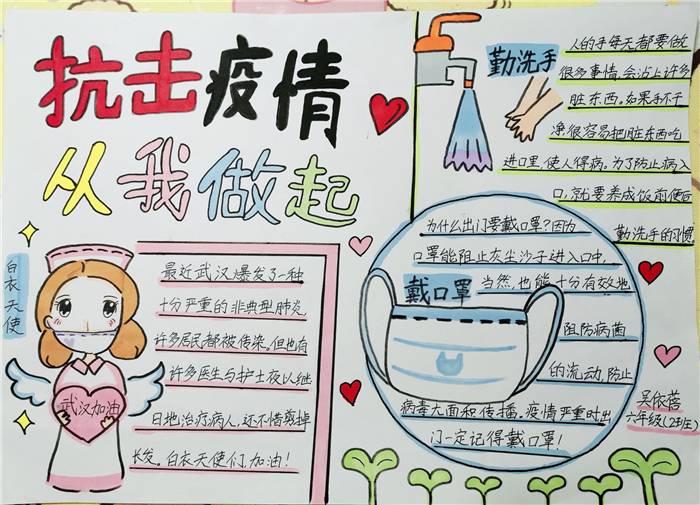 抗击疫情
从我做起
白衣天使
武汉加油
最近武汉爆发了一种
十分严重的非典型肺炎
许多居民都被传染,但也有
许多医生与护士夜以继
日地治疗病人,还不惜剪掉
长发。白衣天使们,加油!
勤洗手
人的手每天都要做
很多事情,会沾上许多
脏东西。如果手不干
净很容易把脏东西吃
进口里,使人得病。为了防止病入
口,就要养成饭前便后
勤洗手的习惯
为什么出门要戴口罩?因为
口罩能阻止灰尘沙子进入口中,
戴口罩
当然,也能十分有效地
阻防病菌
的流动,防止
病毒大面和传播,疫情严重时出
门一定记得戴口罩!
吴依蓓
六年级(2)班